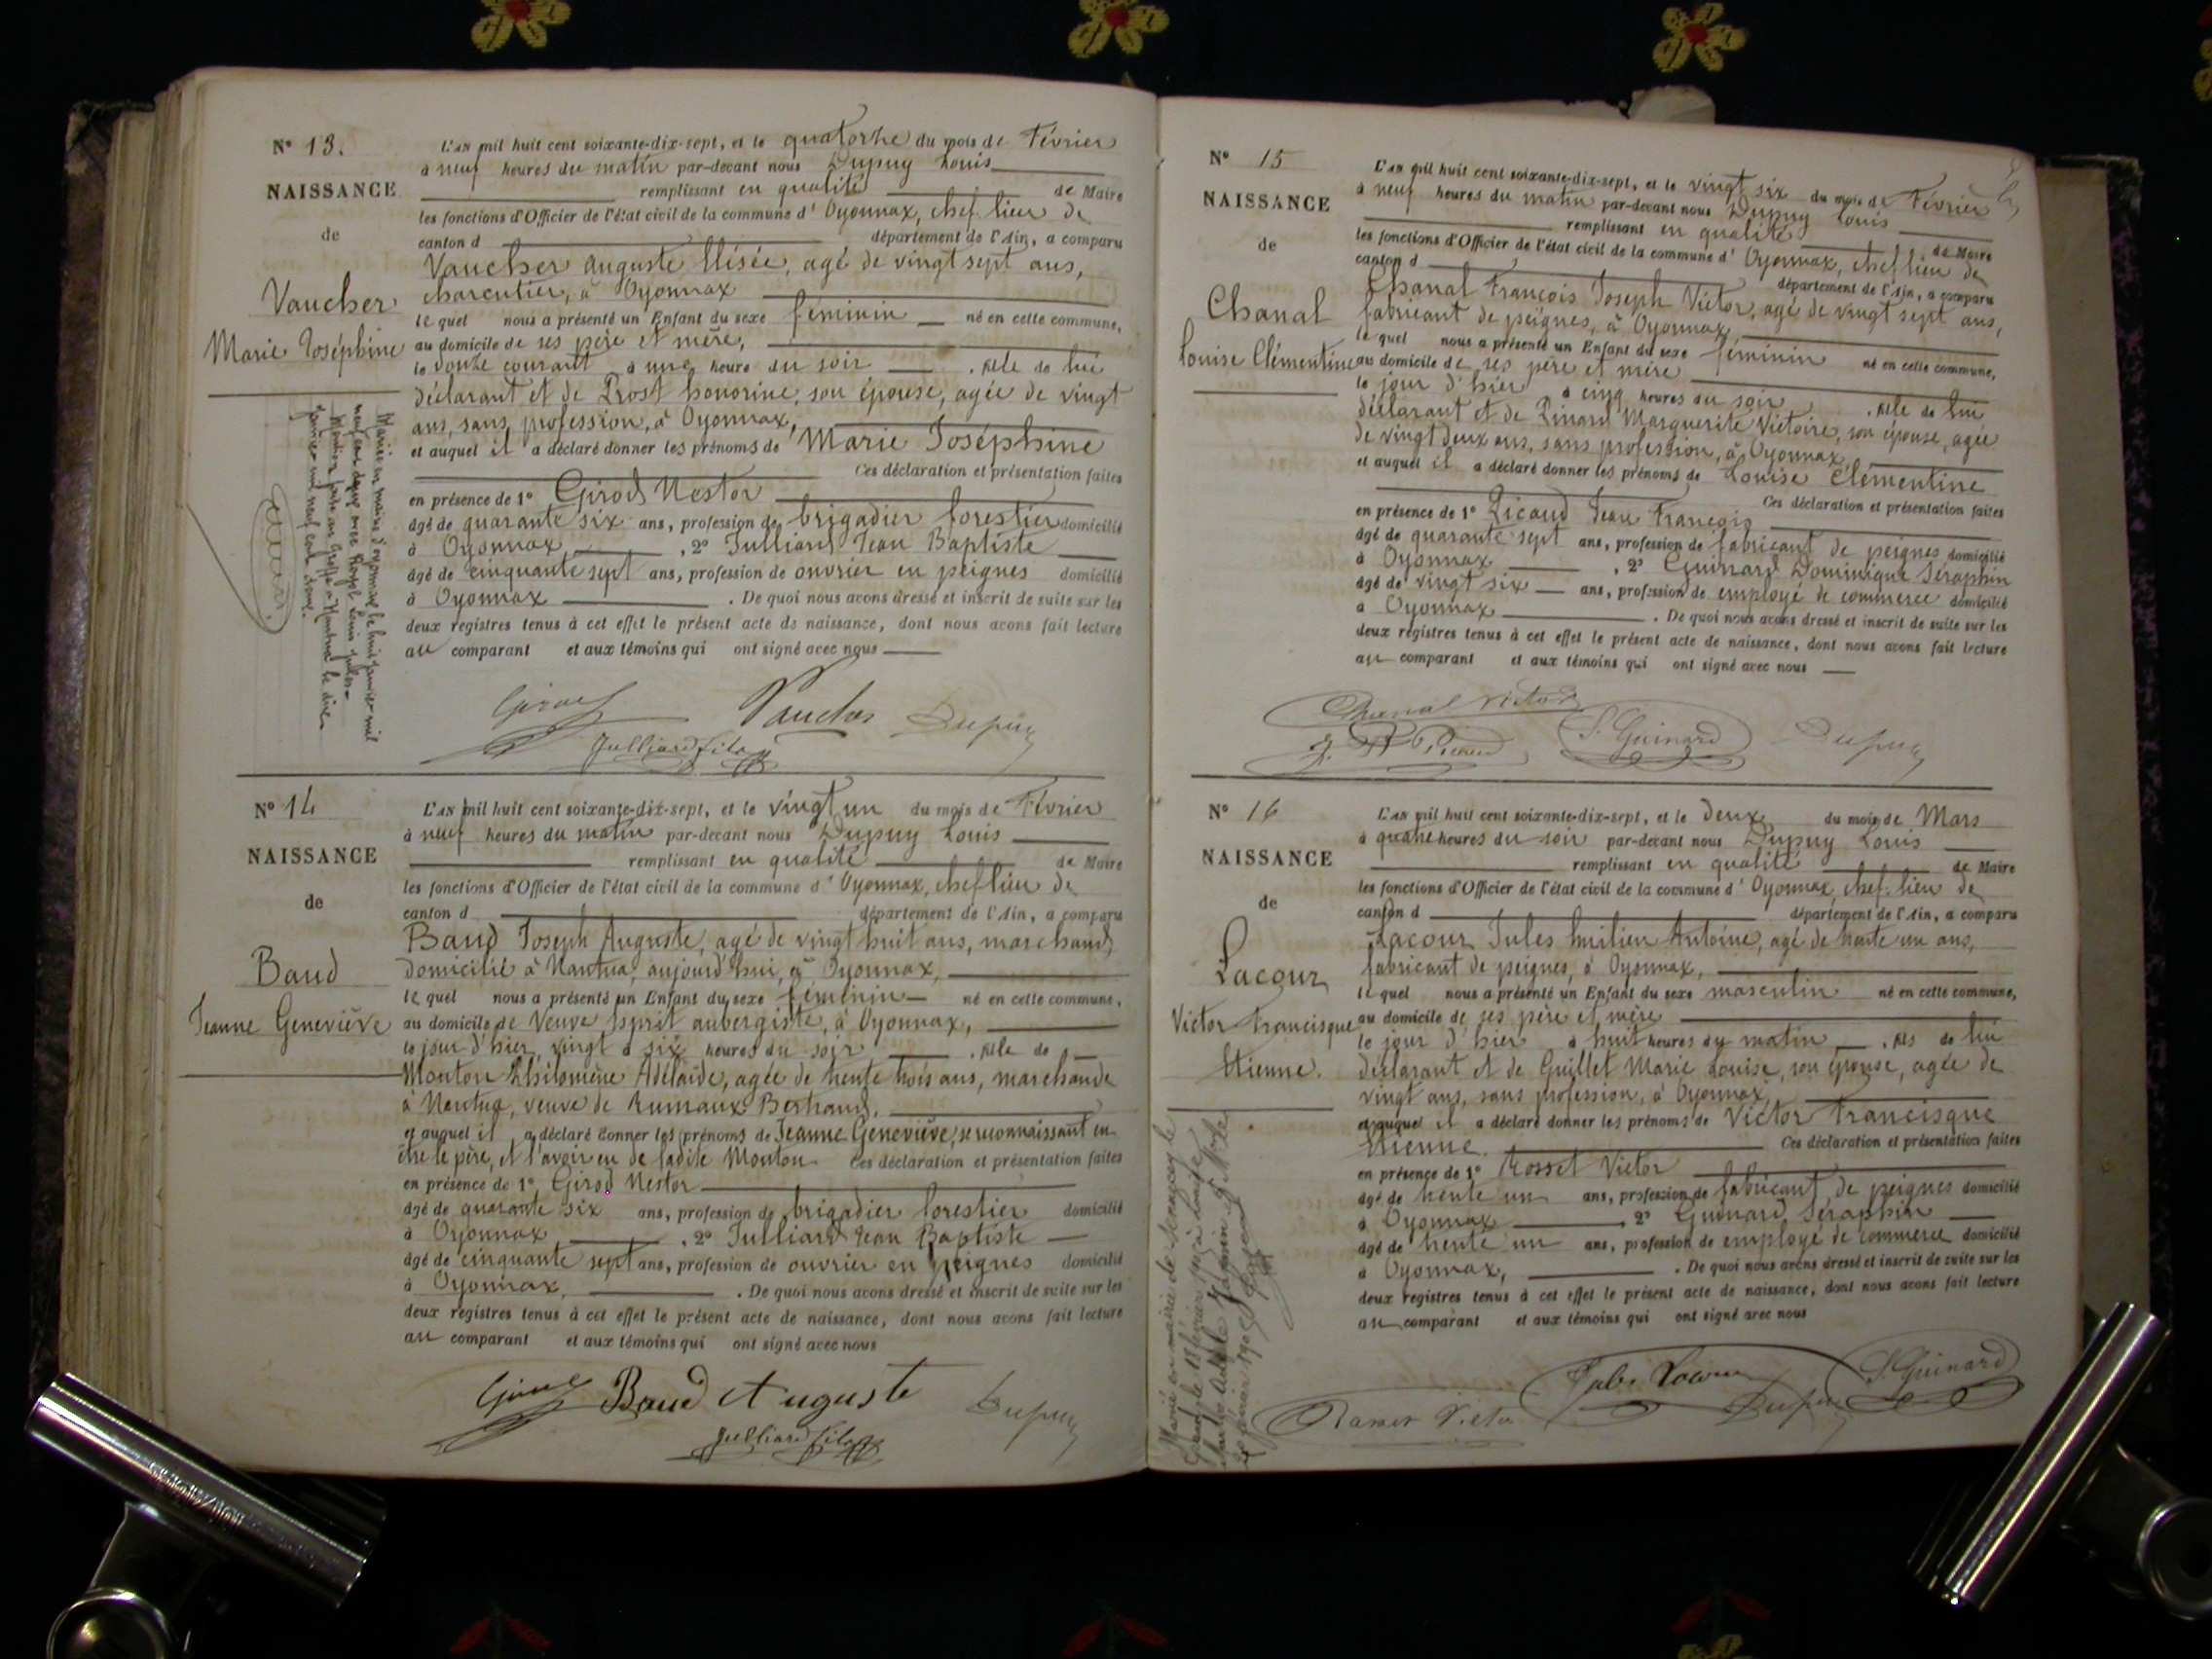 N° 13.
NAISSANCE
de
Vaucher
Marie Joséphine
L'AN mil huit cent soixante-dix-sept, et le quatorze du mois de Février
à neuf heures du matin par-devant nous Dupuy Louis
remplissant en qualité de Maire
les fonctions d'Officier de l'état civil de la commune d' Oyonnax, chef lieu de
canton d département de l'Ain, a comparu
Vaucher Auguste Elisée, agé de vingt sept ans,
charcutier, à Oyonnax
le quel nous a présenté un Enfant du sexe féminin né en cette commune,
au domicile de ses père et mère,
le douze courant à une heure du soir . fille de lui
déclarant et de Prost honorine, son épouse, agée de vingt
ans, sans profession, à Oyonnax,
et auquel il a déclaré donner les prénoms de Marie Joséphine
Ces déclaration et présentation faites
en présence de 1° Girod Nestor
âgé de quarante six ans, profession de brigadier forestier domicilié
à Oyonnax , 2° Julliard Jean Baptiste
âgé de cinquante sept ans, profession de ouvrier en peignes domicilié
à Oyonnax . De quoi nous avons dressé et inscrit de suite sur les
deux registres tenus à cet effet le présent acte de naissance, dont nous avons fait lecture
au comparant et aux témoins qui ont signé avec nous
Girod Vaucher Dupuy
Julliard fils
Mariée en mairie d'oyonnax le huit janvier mil
neuf cent avec Louis Jules
Mention faite au Greffe à Nantua le dix
janvier mil neuf cent
N° 14
NAISSANCE
de
Baud
Jeanne Geneviève
L'AN mil huit cent soixante-dix-sept, et le vingt un du mois de Février
à neuf heures du matin par-devant nous Dupuy Louis
remplissant en qualité de Maire
les fonctions d'Officier de l'état civil de la commune d' Oyonnax, chef lieu de
canton d département de l'Ain, a comparu
Baud Joseph Auguste, agé de vingt huit ans, marchand,
domicilié à Nantua, aujourd'hui, à Oyonnax,
le quel nous a présenté un Enfant du sexe féminin né en cette commune,
au domicile de Veuve Esprit aubergiste, à Oyonnax,
le jour d'hier, vingt à six heures du soir . fille de
Monton Philomène Adélaïde, agée de trente trois ans, marchande
à Nantua, veuve de Rumaux Bertrand,
et auquel il a déclaré donner les prénoms de Jeanne Geneviève, se reconnaissant en
être le père, et l'avoir eu de ladite Monton Ces déclaration et présentation faites
en présence de 1° Girod Nestor
âgé de quarante six ans, profession de brigadier forestier domicilié
à Oyonnax , 2° Julliard Jean Baptiste
âgé de cinquante sept ans, profession de ouvrier en peignes domicilié
à Oyonnax, . De quoi nous avons dressé et inscrit de suite sur les
deux registres tenus à cet effet le présent acte de naissance, dont nous avons fait lecture
au comparant et aux témoins qui ont signé avec nous
Girod Baud Auguste Dupuy
Julliard fils
N° 15
NAISSANCE
de
Chanal
Louise Clémentine
L'AN mil huit cent soixante-dix-sept, et le vingt six du mois de Février
à neuf heures du matin par-devant nous Dupuy Louis
remplissant en qualité de Maire
les fonctions d'Officier de l'état civil de la commune d' Oyonnax, chef lieu de
canton d département de l'Ain, a comparu
Chanal François Joseph Victor, agé de vingt sept ans,
fabricant de peignes, à Oyonnax,
le quel nous a présenté un Enfant du sexe féminin né en cette commune,
au domicile de ses père et mère
le jour d'hier à cinq heures du soir . fille de lui
déclarant et de Pinard Marguerite Victoire, son épouse, agée
de vingt deux ans, sans profession, à Oyonnax,
et auquel il a déclaré donner les prénoms de Louise Clémentine
Ces déclaration et présentation faites
en présence de 1° Picaud Jean François
âgé de quarante sept ans, profession de fabricant de peignes domicilié
à Oyonnax , 2° Guinard Dominique Séraphin
âgé de vingt six ans, profession de employé de commerce domicilié
à Oyonnax . De quoi nous avons dressé et inscrit de suite sur les
deux registres tenus à cet effet le présent acte de naissance, dont nous avons fait lecture
au comparant et aux témoins qui ont signé avec nous
Chanal Victor
S. Guinard Dupuy
N° 16
NAISSANCE
de
Lacour
Victor Francisque
Etienne.
L'AN mil huit cent soixante-dix-sept, et le deux du mois de Mars
à quatre heures du soir par-devant nous Dupuy Louis
remplissant en qualité de Maire
les fonctions d'Officier de l'état civil de la commune d' Oyonnax, chef-lieu de
canton d département de l'Ain, a comparu
Lacour Jules Emilien Antoine, agé de trente un ans,
fabricant de peignes, à Oyonnax,
le quel nous a présenté un Enfant du sexe masculin né en cette commune,
au domicile de ses père et mère
le jour d'hier à huit heures du matin . fils de lui
déclarant et de Guillet Marie Louise, son épouse, agée de
vingt ans, sans profession, à Oyonnax,
et auquel il a déclaré donner les prénoms de Victor Francisque
Etienne. Ces déclaration et présentation faites
en présence de 1° Rosset Victor
âgé de trente un ans, profession de fabricant de peignes domicilié
à Oyonnax , 2° Guinard Séraphin
âgé de trente un ans, profession de employé de commerce domicilié
à Oyonnax, . De quoi nous avons dressé et inscrit de suite sur les
deux registres tenus à cet effet le présent acte de naissance, dont nous avons fait lecture
au comparant et aux témoins qui ont signé avec nous
Jules Lacour S. Guinard
Victor Dupuy
Marié en mairie de le